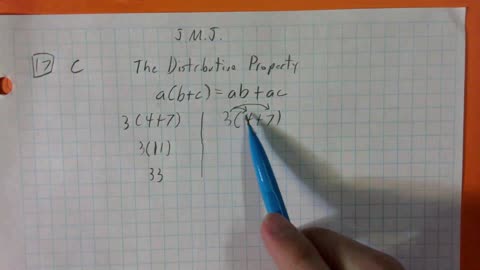 J.M.J.
17 C The Distributive Property
a(b+c)=ab+ac
3(4+7) 3(4+7)
3(11)
33